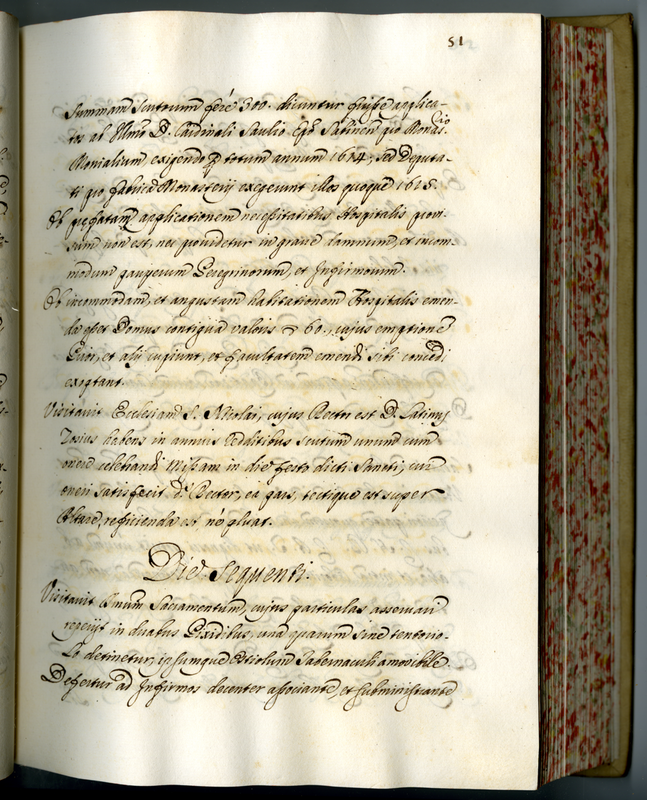 51
Summam scutorum ferè 300. dicuntur fuisse applica-
tos ab Illmo D. Cardinali Saulio Epõ Sabinen pio Monas.rio
Monialium exigendo p totum annum 1614, sed Deputa-
ti pio fabrica Monasterij exegerunt illos quoque 1615.
Ob prefatam applicationem necessitatibus Hospitalis provi-
sum non est, nec providetur in grave damnum, et incom-
modum pauperum Peregrinorum, et Infirmorum.
Ob incommodam, et angustam habitationem Hospitalis emen-
da esset Domus contigua valoris 60., cujus emptione
Prior, et alij cupiunt, et facultatem emendi sibi concedi
exoptant.
Visitavit Ecclesiam S. Nicolai, cujus Rector est D. Latinus
Tosius habens in annuis redditibus scutum unum cum
onere celebrandi Missam in die festo dicti Sancti, cui
oneri satisfecit ds Rector, ea pars, tectique est super
Altare, reficienda est nè pluat.
Die sequenti.
Visitavit Smum Sacramentum, cujus particulas asservari
reperijt in duabus Pixidibus, una quarum sine tentorio-
lo detinetur, ipsumque Ostiolum Tabernaculi amovibile
Defertur ad Infirmos decenter associante, et subministrante